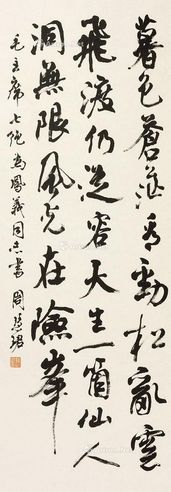 暮色蒼茫看勁松亂雲
飛渡仍從容天生一個仙人
洞無限風光在險峰
毛主席七絕為鳳義同志書 周慧珺